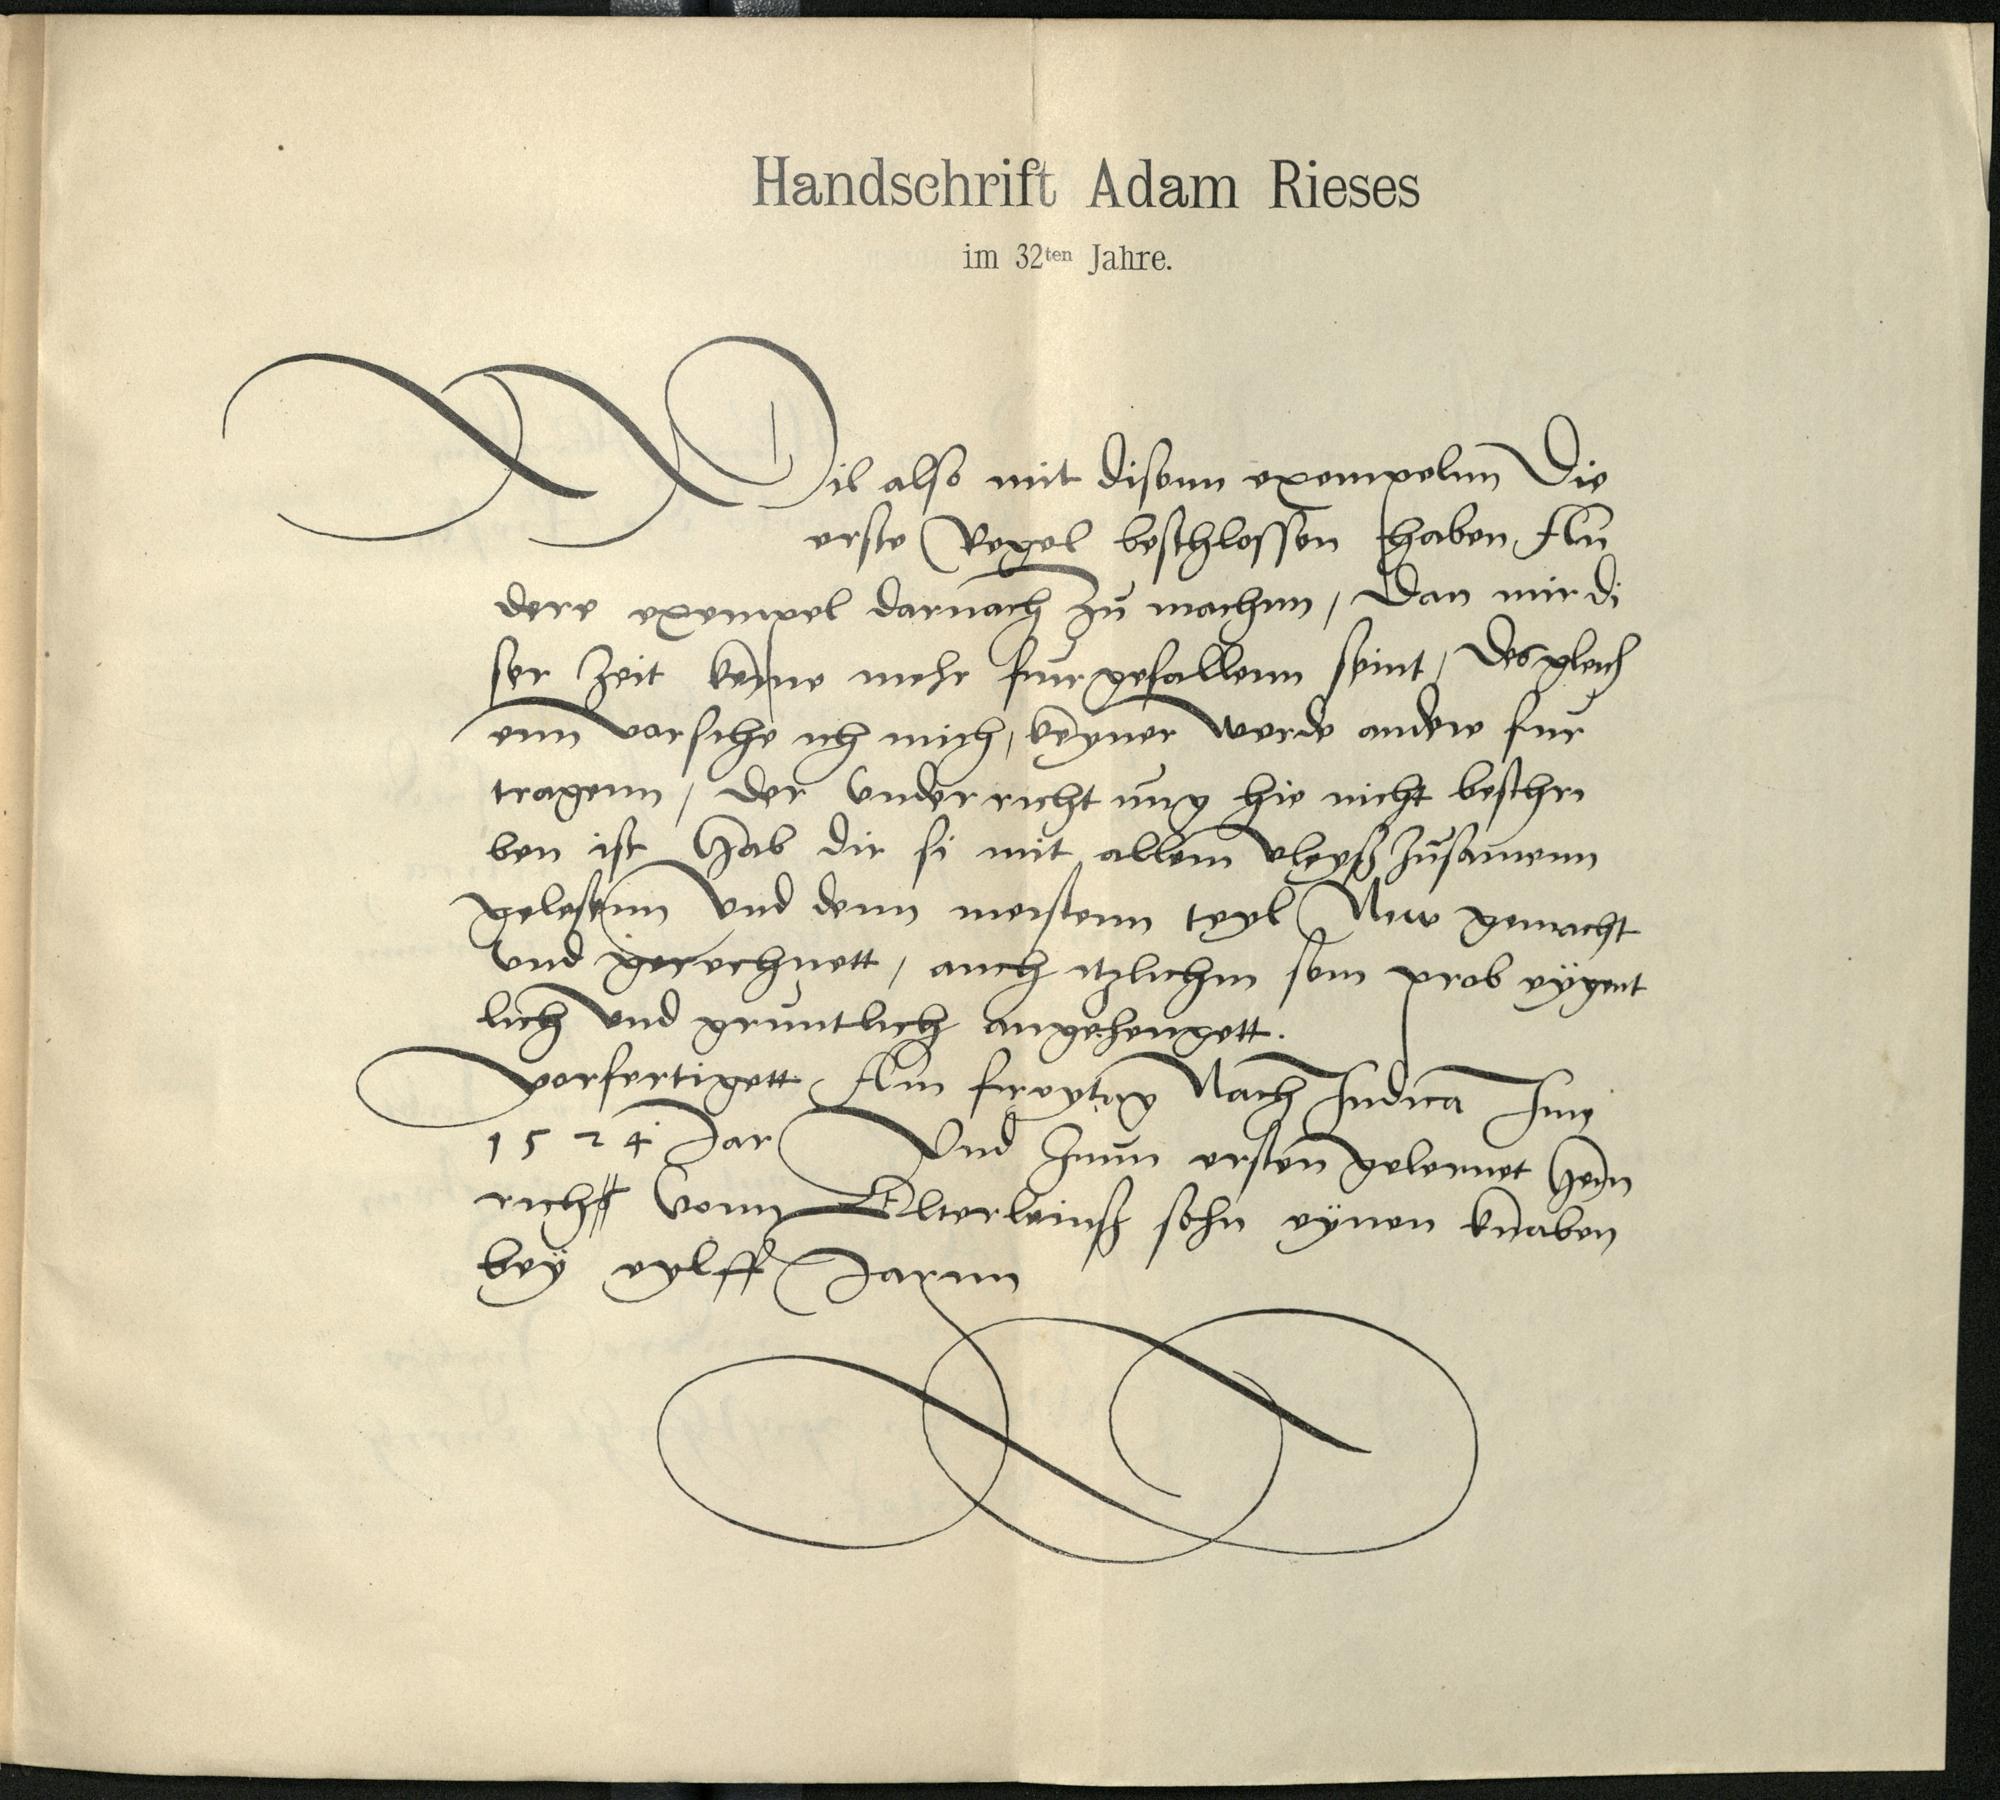 Handschrift Adam Rieses
im 32ten Jahre.
Wil also mit disenn exempelnn Die
erste Regel beschlossen haben, An
dere exempel darnach zu machnn, Dan mir di
ser Zeit keyne mehr furgefallenn seint, Desgleich
enn vorsihe ich mich, keyner werde andere fur
tragenn, Der underrichtung hie nicht beschri
ben ist Hab dir si mit allem vleyß zusamenn
gelesenn Vnd denn meistenn teyl New gemacht
Vnd gerechnett, auch itzlichm sein prob eÿgent
lich Vnd gruntlich angehengett.
Vorfertigett Am freytag Nach Judica Im
1524 Jar Vnd Zum ersten gelernet Hein
richs Vonn Elterleinß sohn eÿnen knaben
beÿ eylff Jarnn